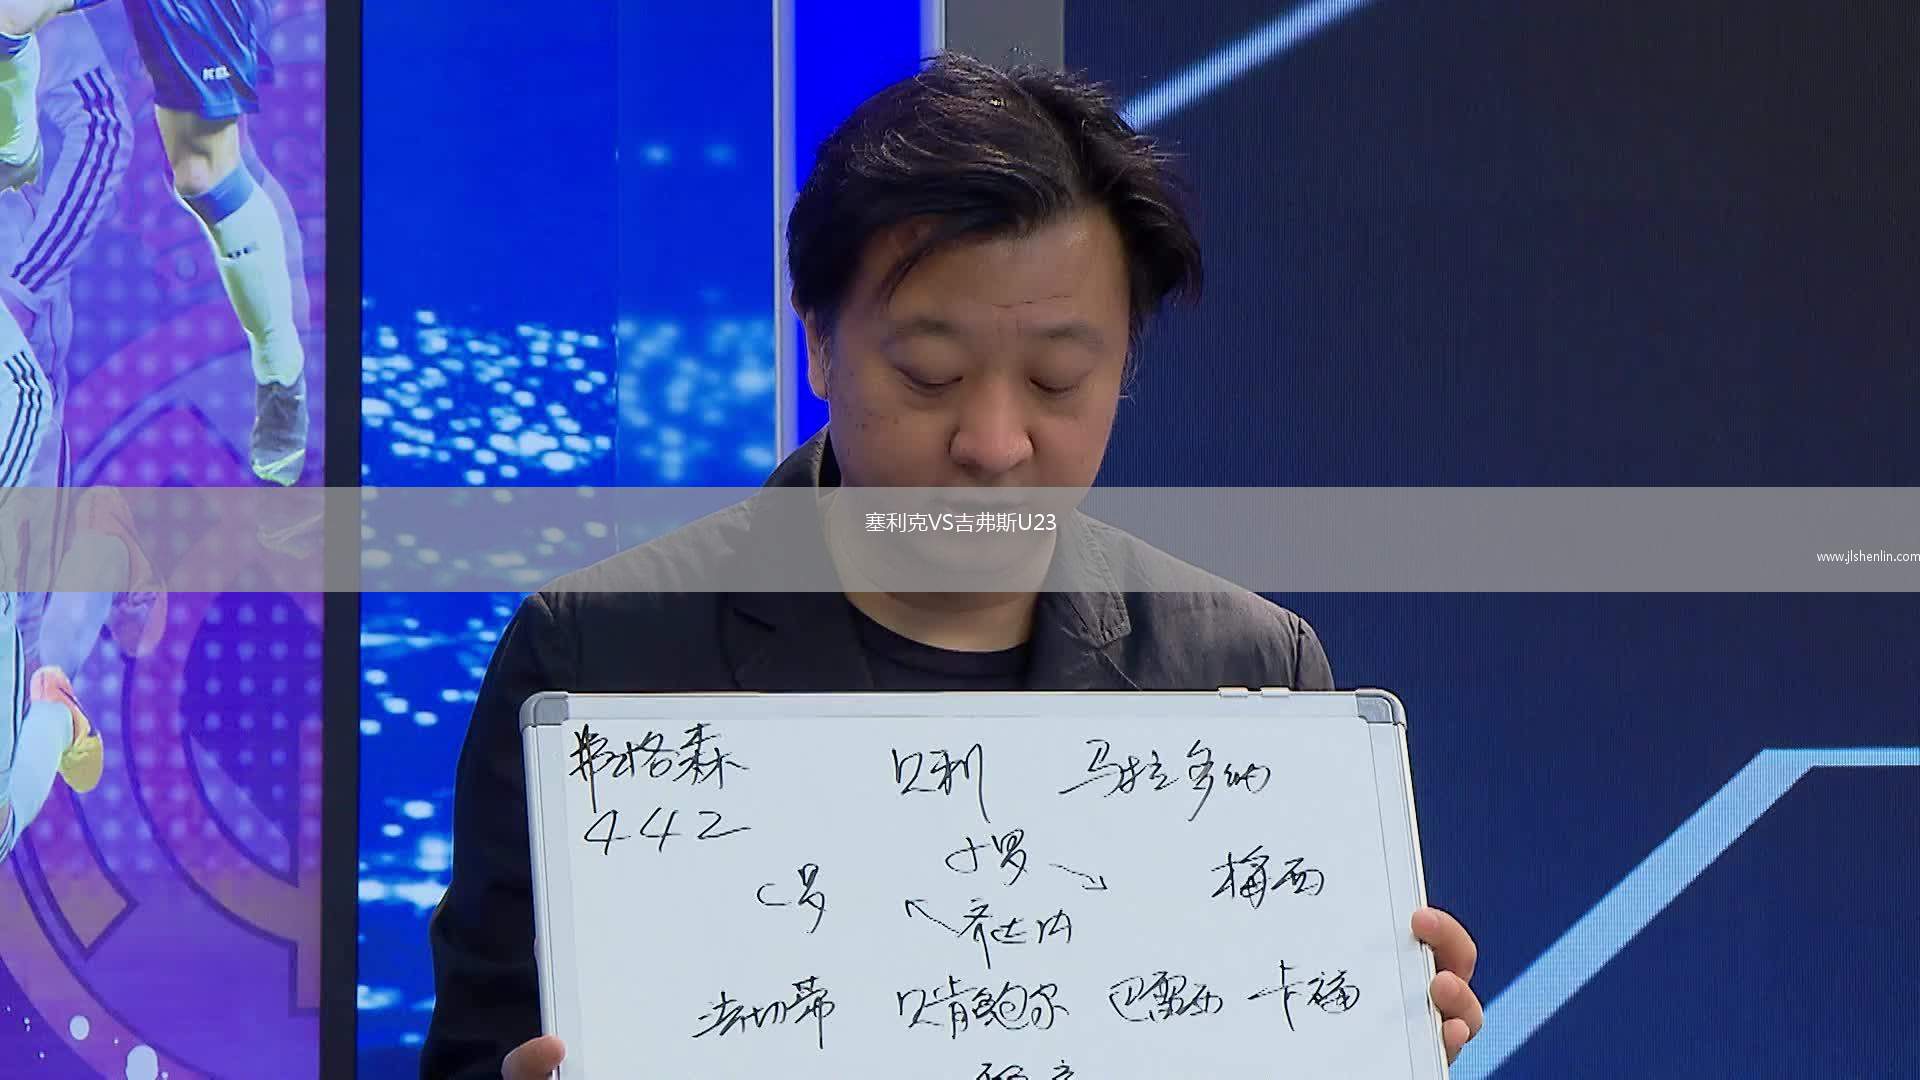 塞利克VS吉弗斯U23
www.jlshenlin.com
弗格森 贝利 马拉多纳
442
小罗
C罗 梅西
齐达内
法切蒂 贝肯鲍尔 巴雷西 卡福